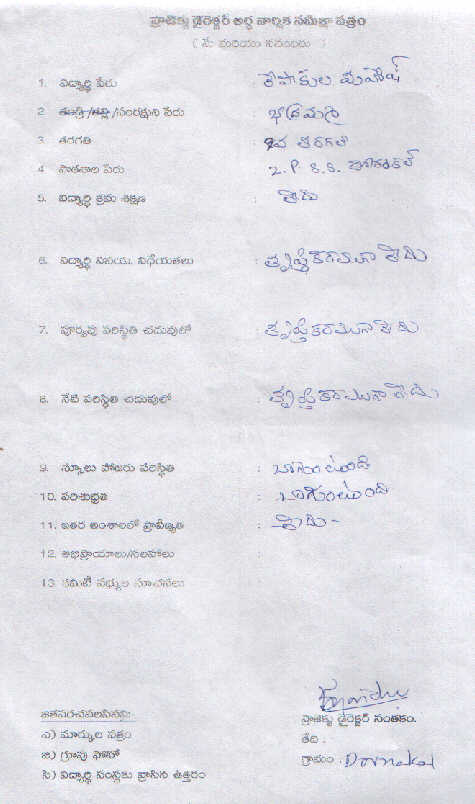 ప్రాజెక్టు డైరెక్టర్ అర్ధ వార్షిక సమీక్షా పత్రం
( మే మరియు నవంబరు )
1. విద్యార్థి పేరు : కేపాకుల మహేష్
2. తండ్రి/తల్లి/సంరక్షకుని పేరు :
3. తరగతి : 9వ తరగతి
4. పాఠశాల పేరు : Z.P.S.S.
5. విద్యార్థి క్రమ శిక్షణ :
6. విద్యార్థి వినయ, విధేయతలు :
7. పూర్వపు పరిస్థితి చదువులో : తృప్తికరముగా
8. నేటి పరిస్థితి చదువులో : తృప్తికరముగా
9. స్కూలు హాజరు పరిస్థితి : బాగుంటుంది
10. పరిశుభ్రత : బాగుంటుంది
11. ఇతర అంశాలలో ప్రావీణ్యత :
12. అభిప్రాయాలు/సలహాలు :
13. కమిటీ సభ్యుల సూచనలు
జతపరచవలసినవి:
ఎ) మార్కుల పత్రం
బి) గ్రూపు ఫోటో
సి) విద్యార్థి సంస్థకు వ్రాసిన ఉత్తరం
ప్రాజెక్టు డైరెక్టర్ సంతకం.
తేది :
గ్రామం : Dornakal